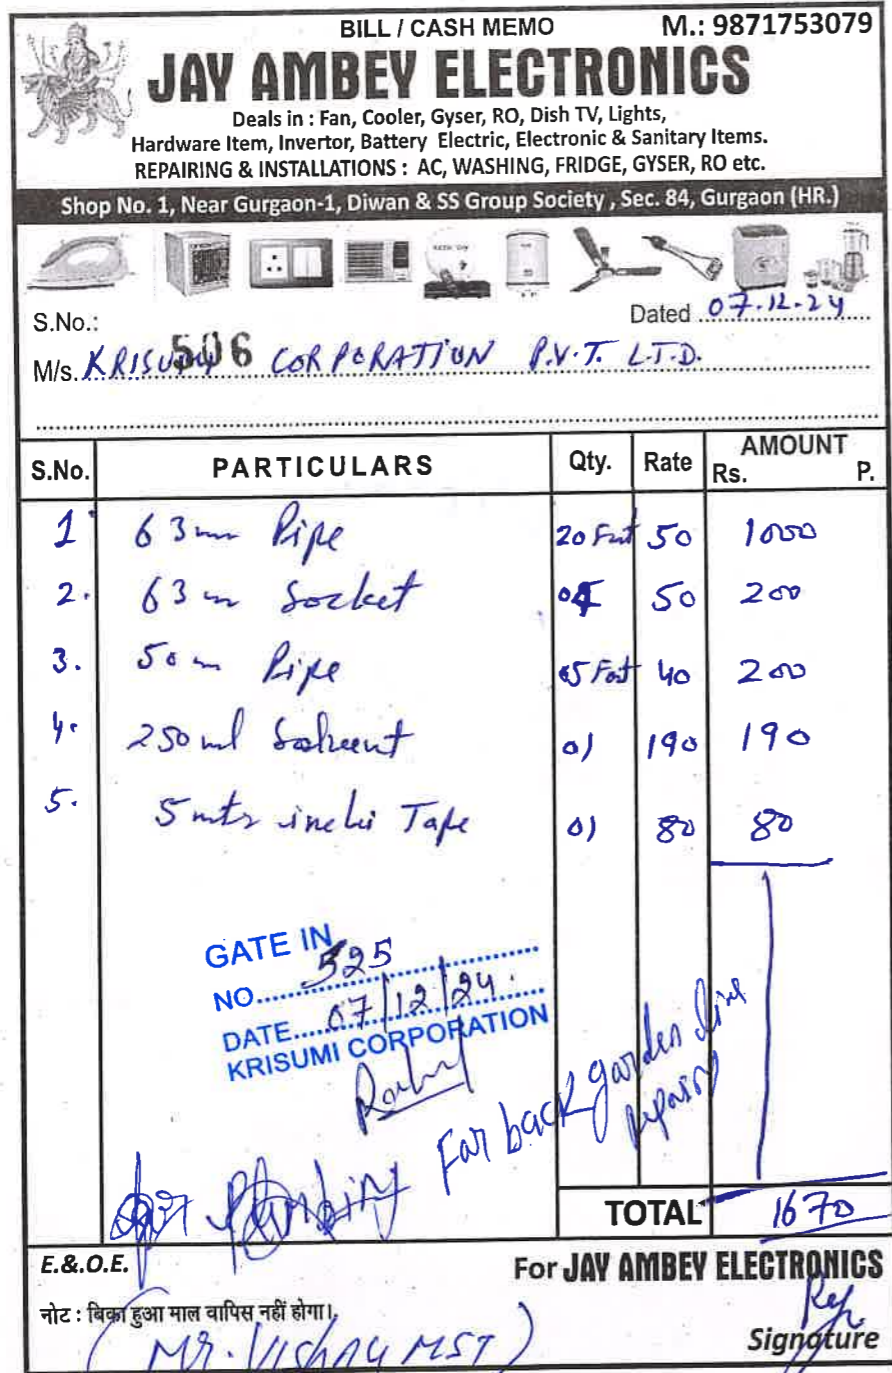 BILL / CASH MEMO M.: 9871753079
JAY AMBEY ELECTRONICS
Deals in : Fan, Cooler, Gyser, RO, Dish TV, Lights,
Hardware Item, Invertor, Battery Electric, Electronic & Sanitary Items.
REPAIRING & INSTALLATIONS : AC, WASHING, FRIDGE, GYSER, RO etc.
Shop No. 1, Near Gurgaon-1, Diwan & SS Group Society , Sec. 84, Gurgaon (HR.)
S.No.: 506 Dated 07.12.24
M/s. KRISUMI CORPORATION P.V.T. L.T.D.
S.No. PARTICULARS Qty. Rate AMOUNT
Rs. P.
1 63mm Pipe 20 Feet 50 1000
2. 63 m Socket 04 50 200
3. 50 m Pipe 05 Feet 40 200
4. 250 ml Solvent 01 190 190
5. 5 mtr inchi Tape 01 80 80
GATE IN
NO. 525
DATE 07/12/24.
KRISUMI CORPORATION
Rahul
For back garden line
repairing
TOTAL 1670
E.&.O.E. For JAY AMBEY ELECTRONICS
नोट : बिका हुआ माल वापिस नहीं होगा।
Signature
(Mr. Vishay MST)